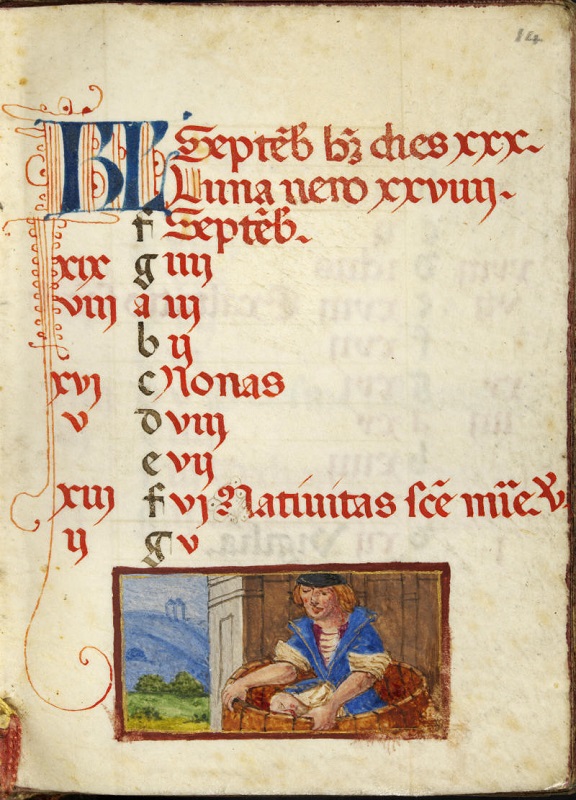 14
KL Septēb hȝ dies xxx.
Luna uero xxviiii.
f Septēb.
xix g iiii
viii a iii
b ii
xvi c Nonas
v d viii
e vii
xiii f vi Natiuitas scē mīe v.
ii g v